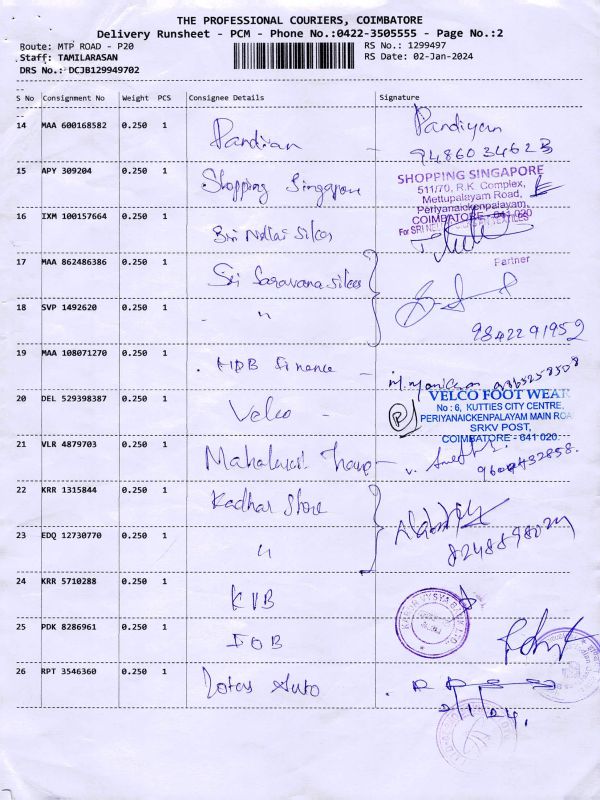 THE PROFESSIONAL COURIERS, COIMBATORE
Delivery Runsheet - PCM - Phone No.:0422-3505555 - Page No.:2
Route: MTP ROAD - P20
RS No.: 1299497
Staff: TAMILARASAN
RS Date: 02-Jan-2024
DRS No.: DCJB129949702
S No Consignment No Weight PCS Consignee Details Signature
14 MAA 600168582 0.250 1 Pandian - Pandiyan
9486034623
15 APY 309204 0.250 1 Shopping Singapore
SHOPPING SINGAPORE
511/70, R.K. Complex,
Mettupalayam Road,
Periyanaickenpalayam,
COIMBATORE - 641 020
16 IXM 100157664 0.250 1 Sri Nellai silks
For SRI
Partner
17 MAA 862486386 0.250 1 Sri Saravana silks
18 SVP 1492620 0.250 1 - "
9842291952
19 MAA 108071270 0.250 1 HDB finance -
20 DEL 529398387 0.250 1 Velco -
VELCO FOOT WEAR
No : 6, KUTTIES CITY CENTRE,
PERIYANAICKENPALAYAM MAIN ROA
SRKV POST,
COIMBATORE - 641 020.
21 VLR 4879703 0.250 1 Mahalaxmi -
9600432858.
22 KRR 1315844 0.250 1 Kadhar Store
23 EDQ 12730770 0.250 1 "
8248898024
24 KRR 5710288 0.250 1 KVB
25 PDK 8286961 0.250 1 IOB
26 RPT 3546360 0.250 1 Lotus Auto
2/1/24.